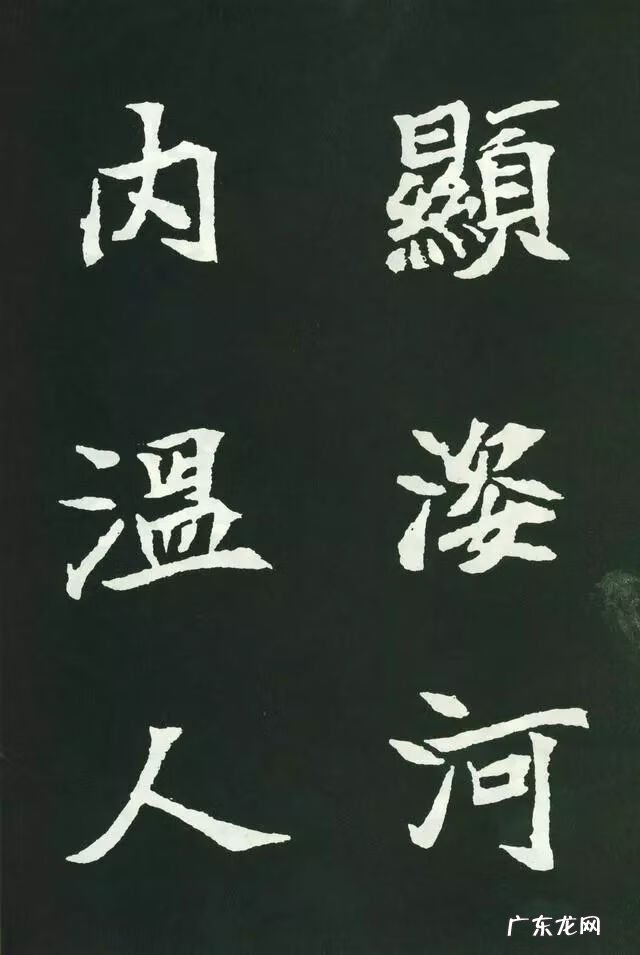 顯姿河
内溫人
广东龙网